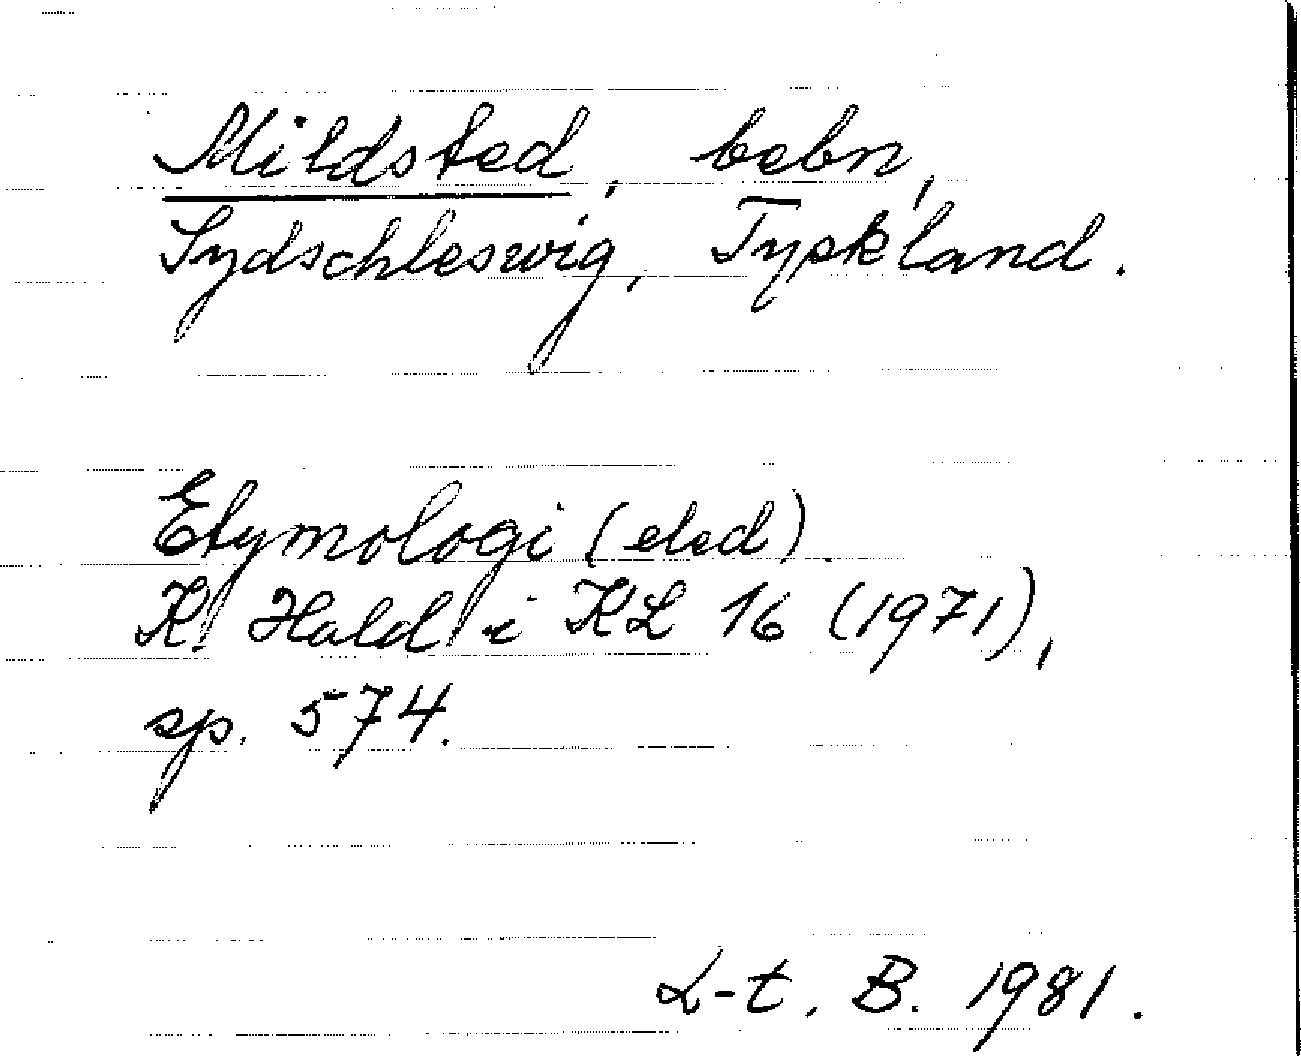 Mildsted, bebn,
Sydschleswig, Tyskland.
Etymologi (sted).
K. Hald i KL 16 (1971),
sp. 574.
L-t. B. 1981.